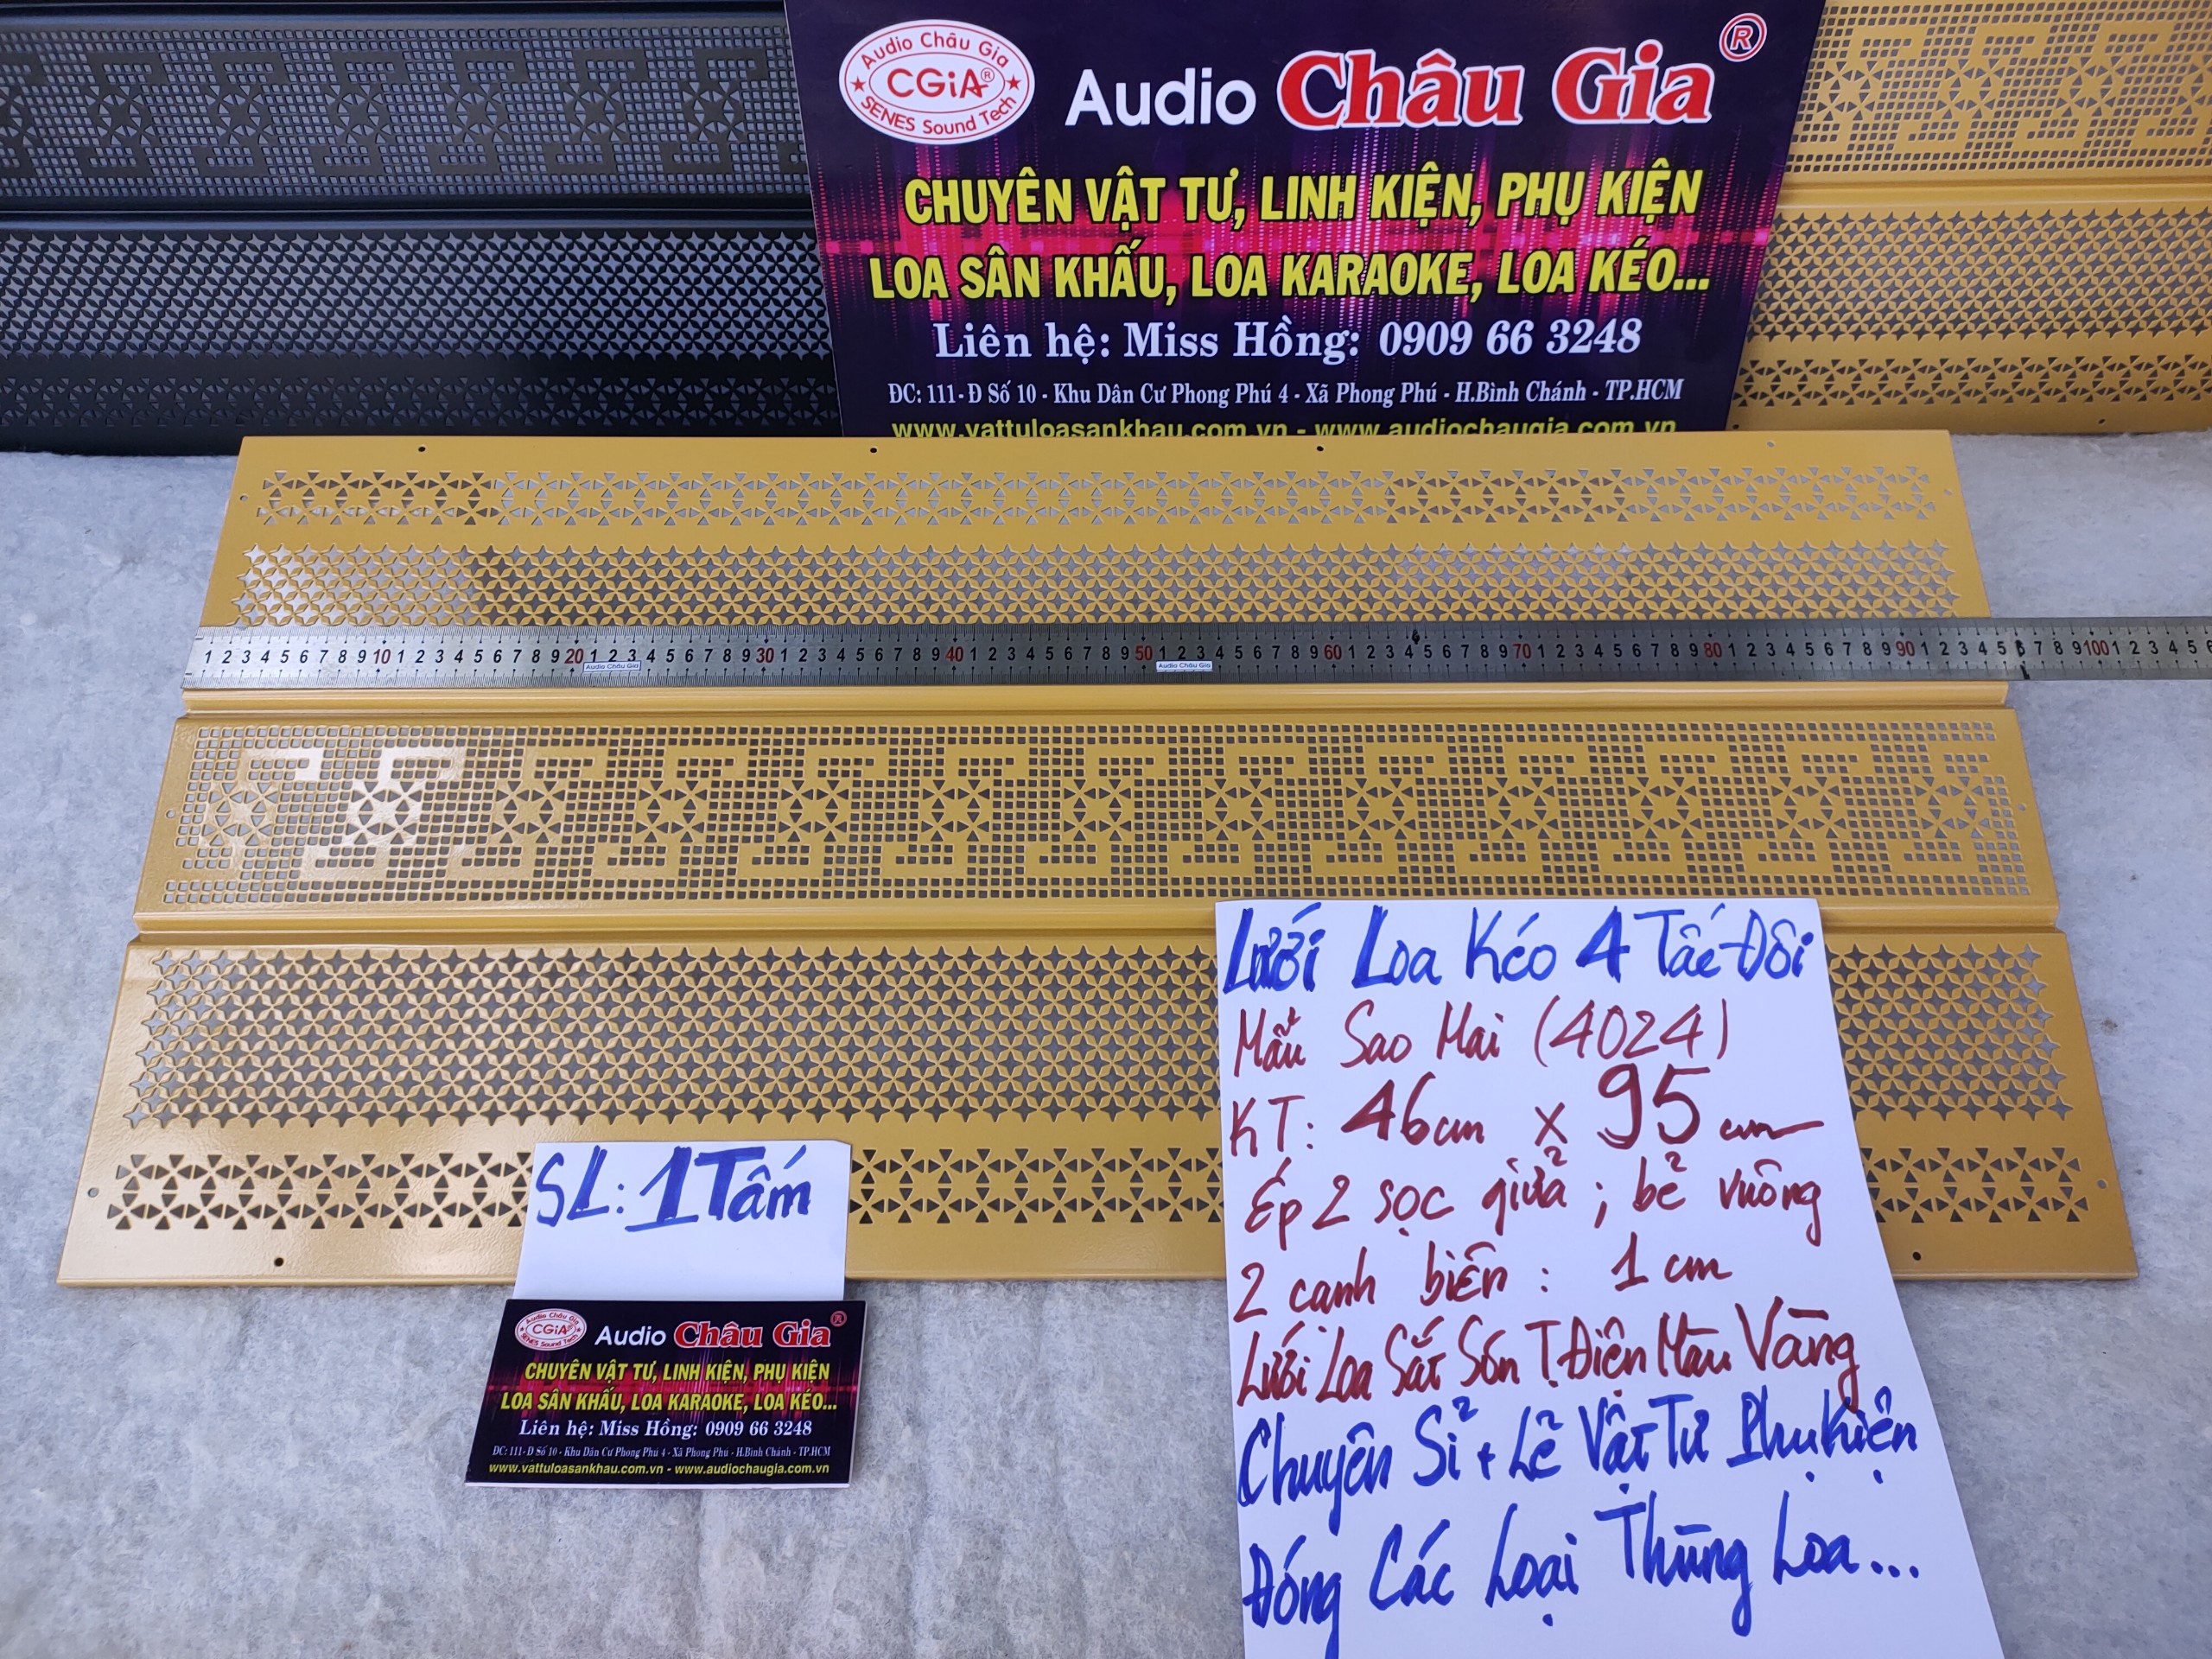 Audio Châu Gia
CGiA®
SENES Sound Tech
Audio Châu Gia ®
CHUYÊN VẬT TƯ, LINH KIỆN, PHỤ KIỆN
LOA SÂN KHẤU, LOA KARAOKE, LOA KÉO...
Liên hệ: Miss Hồng: 0909 66 3248
ĐC: 111-Đ Số 10 - Khu Dân Cư Phong Phú 4 - Xã Phong Phú - H.Bình Chánh - TP.HCM
www.vattuloasankhau.com.vn - www.audiochaugia.com.vn
1 2 3 4 5 6 7 8 9 10 1 2 3 4 5 6 7 8 9 20 1 2 3 4 5 6 7 8 9 30 1 2 3 4 5 6 7 8 9 40 1 2 3 4 5 6 7 8 9 50 1 2 3 4 5 6 7 8 9 60 1 2 3 4 5 6 7 8 9 70 1 2 3 4 5 6 7 8 9 80 1 2 3 4 5 6 7 8 9 90 1 2 3 4 5 6 7 8 9 100 1 2 3 4 5
Audio Châu Gia
Audio Châu Gia
Lưới Loa Kéo 4 Tấc Đôi
Mẫu Sao Mai (4024)
KT: 46cm x 95cm
Ép 2 sọc giữa; bẻ vuông
2 cạnh biên: 1 cm
Lưới Loa Sắt Sơn T.Điện Màu Vàng
Chuyên Sỉ + Lẻ Vật Tư Phụ Kiện
Đóng Các Loại Thùng Loa...
SL: 1 Tấm
Audio Châu Gia
CGiA
SENES Sound Tech
Audio Châu Gia ®
CHUYÊN VẬT TƯ, LINH KIỆN, PHỤ KIỆN
LOA SÂN KHẤU, LOA KARAOKE, LOA KÉO...
Liên hệ: Miss Hồng: 0909 66 3248
ĐC: 111-Đ Số 10 - Khu Dân Cư Phong Phú 4 - Xã Phong Phú - H.Bình Chánh - TP.HCM
www.vattuloasankhau.com.vn - www.audiochaugia.com.vn